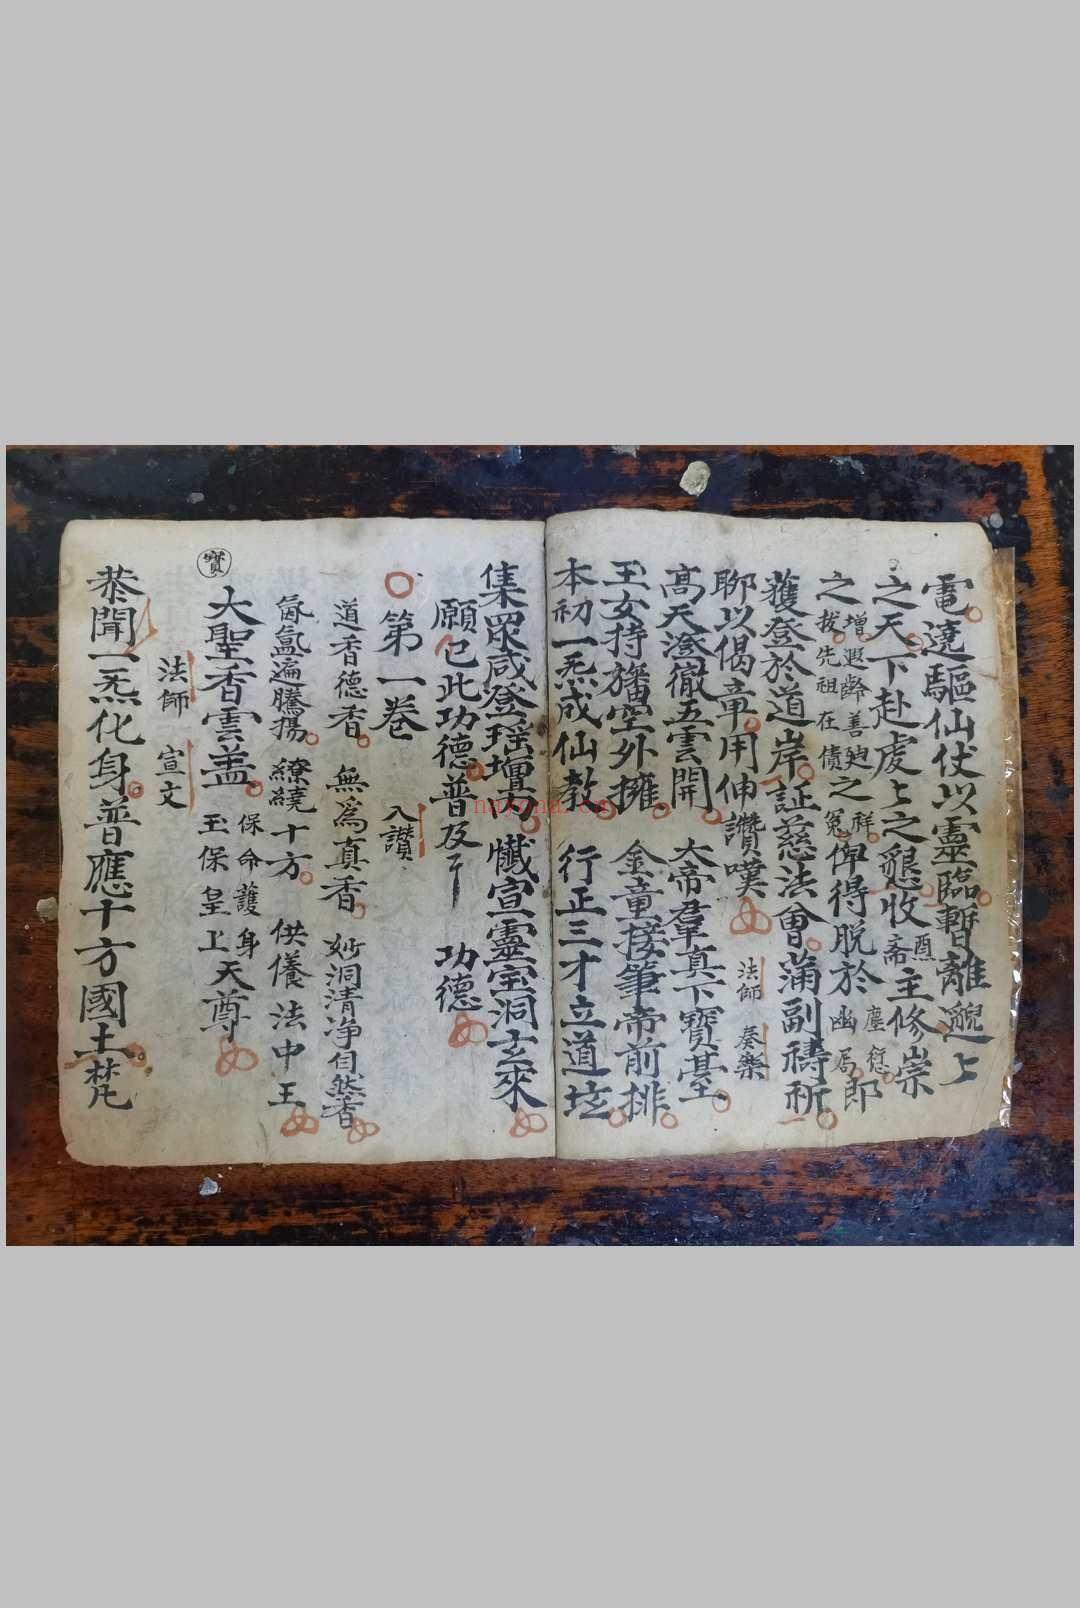 電遶驅仙仗以靈臨暫離
之天下赴處々之懇收 酉 齋 主修崇
之 增遐齡善 之祥 拔先祖在債 冤 俾得脫於 塵 幽局 郎
獲登於道岸証慈法會蒲副禱祈
聊以偈章用伸讚嘆 法師 奏樂
高天澄徹五雲開 大帝羣真下寶臺
玉女持旛空外擁 金童接筆帝前排
本初一炁成仙教 行正三才立道
集眾咸登瑤壇內 懺宣靈宝洞玄來
願已此功德普及 功德
第一卷 入讚
道香德香 無為真香 妙洞清净自然香
氤氳遍騰揚 繚繞十方 供養法中王
寶
大聖香雲盖 保命護身 玉保皇上 天尊
法師 宣文
恭聞一炁化身普應十方國土梵